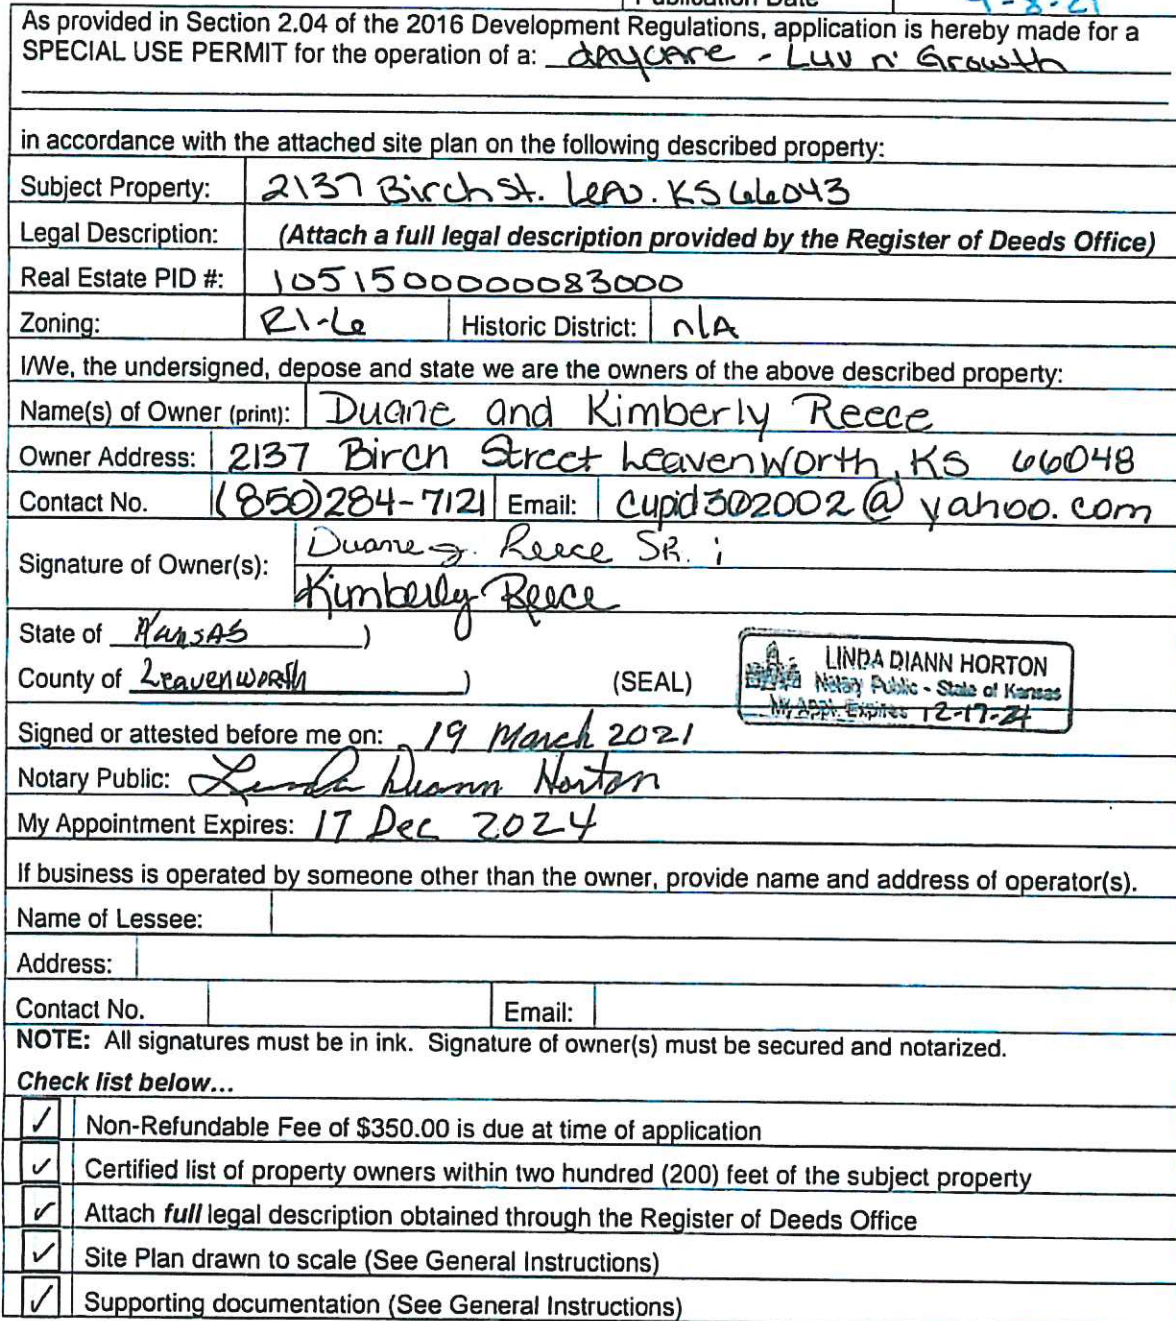 Publication Date
As provided in Section 2.04 of the 2016 Development Regulations, application is hereby made for a
SPECIAL USE PERMIT for the operation of a: daycare - Luv n' Growth
in accordance with the attached site plan on the following described property:
Subject Property: 2137 Birch St. Leav. KS 66043
Legal Description: (Attach a full legal description provided by the Register of Deeds Office)
Real Estate PID #: 1051500000083000
Zoning: R1-6 Historic District: n/A
I/We, the undersigned, depose and state we are the owners of the above described property:
Name(s) of Owner (print): Duane and Kimberly Reece
Owner Address: 2137 Birch Street Leavenworth, KS 66048
Contact No. (850)284-7121 Email: cupid302002@yahoo.com
Signature of Owner(s): Duane J. Reece SR. ;
Kimberly Reece
State of Kansas )
County of Leavenworth ) (SEAL)
LINDA DIANN HORTON
Notary Public - State of Kansas
My Appt. Expires 12-17-24
Signed or attested before me on: 19 March 2021
Notary Public: Linda Diann Horton
My Appointment Expires: 17 Dec 2024
If business is operated by someone other than the owner, provide name and address of operator(s).
Name of Lessee:
Address:
Contact No. Email:
NOTE: All signatures must be in ink. Signature of owner(s) must be secured and notarized.
Check list below...
✓ Non-Refundable Fee of $350.00 is due at time of application
✓ Certified list of property owners within two hundred (200) feet of the subject property
✓ Attach full legal description obtained through the Register of Deeds Office
✓ Site Plan drawn to scale (See General Instructions)
✓ Supporting documentation (See General Instructions)